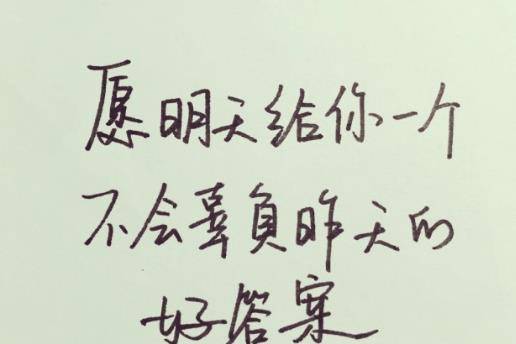 愿明天给你一个
不会辜负昨天的
好答案